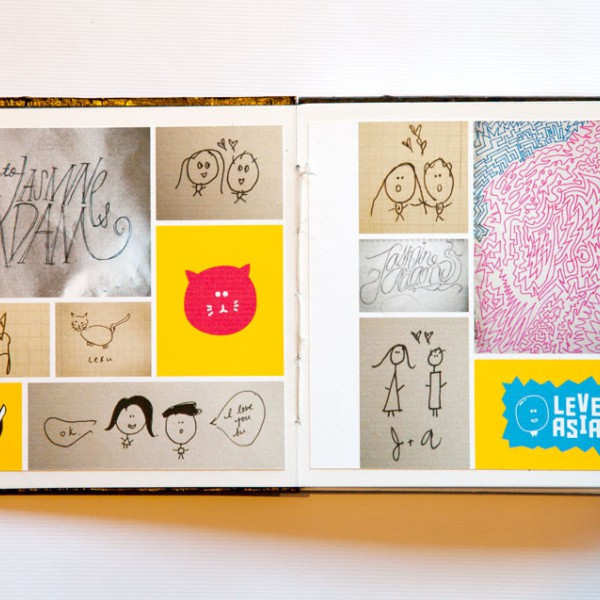 to JASMINE
ADAMs
cebu
ok.
I love
you
bu
Jasmine
adams
J + a
LEVE
ASIA